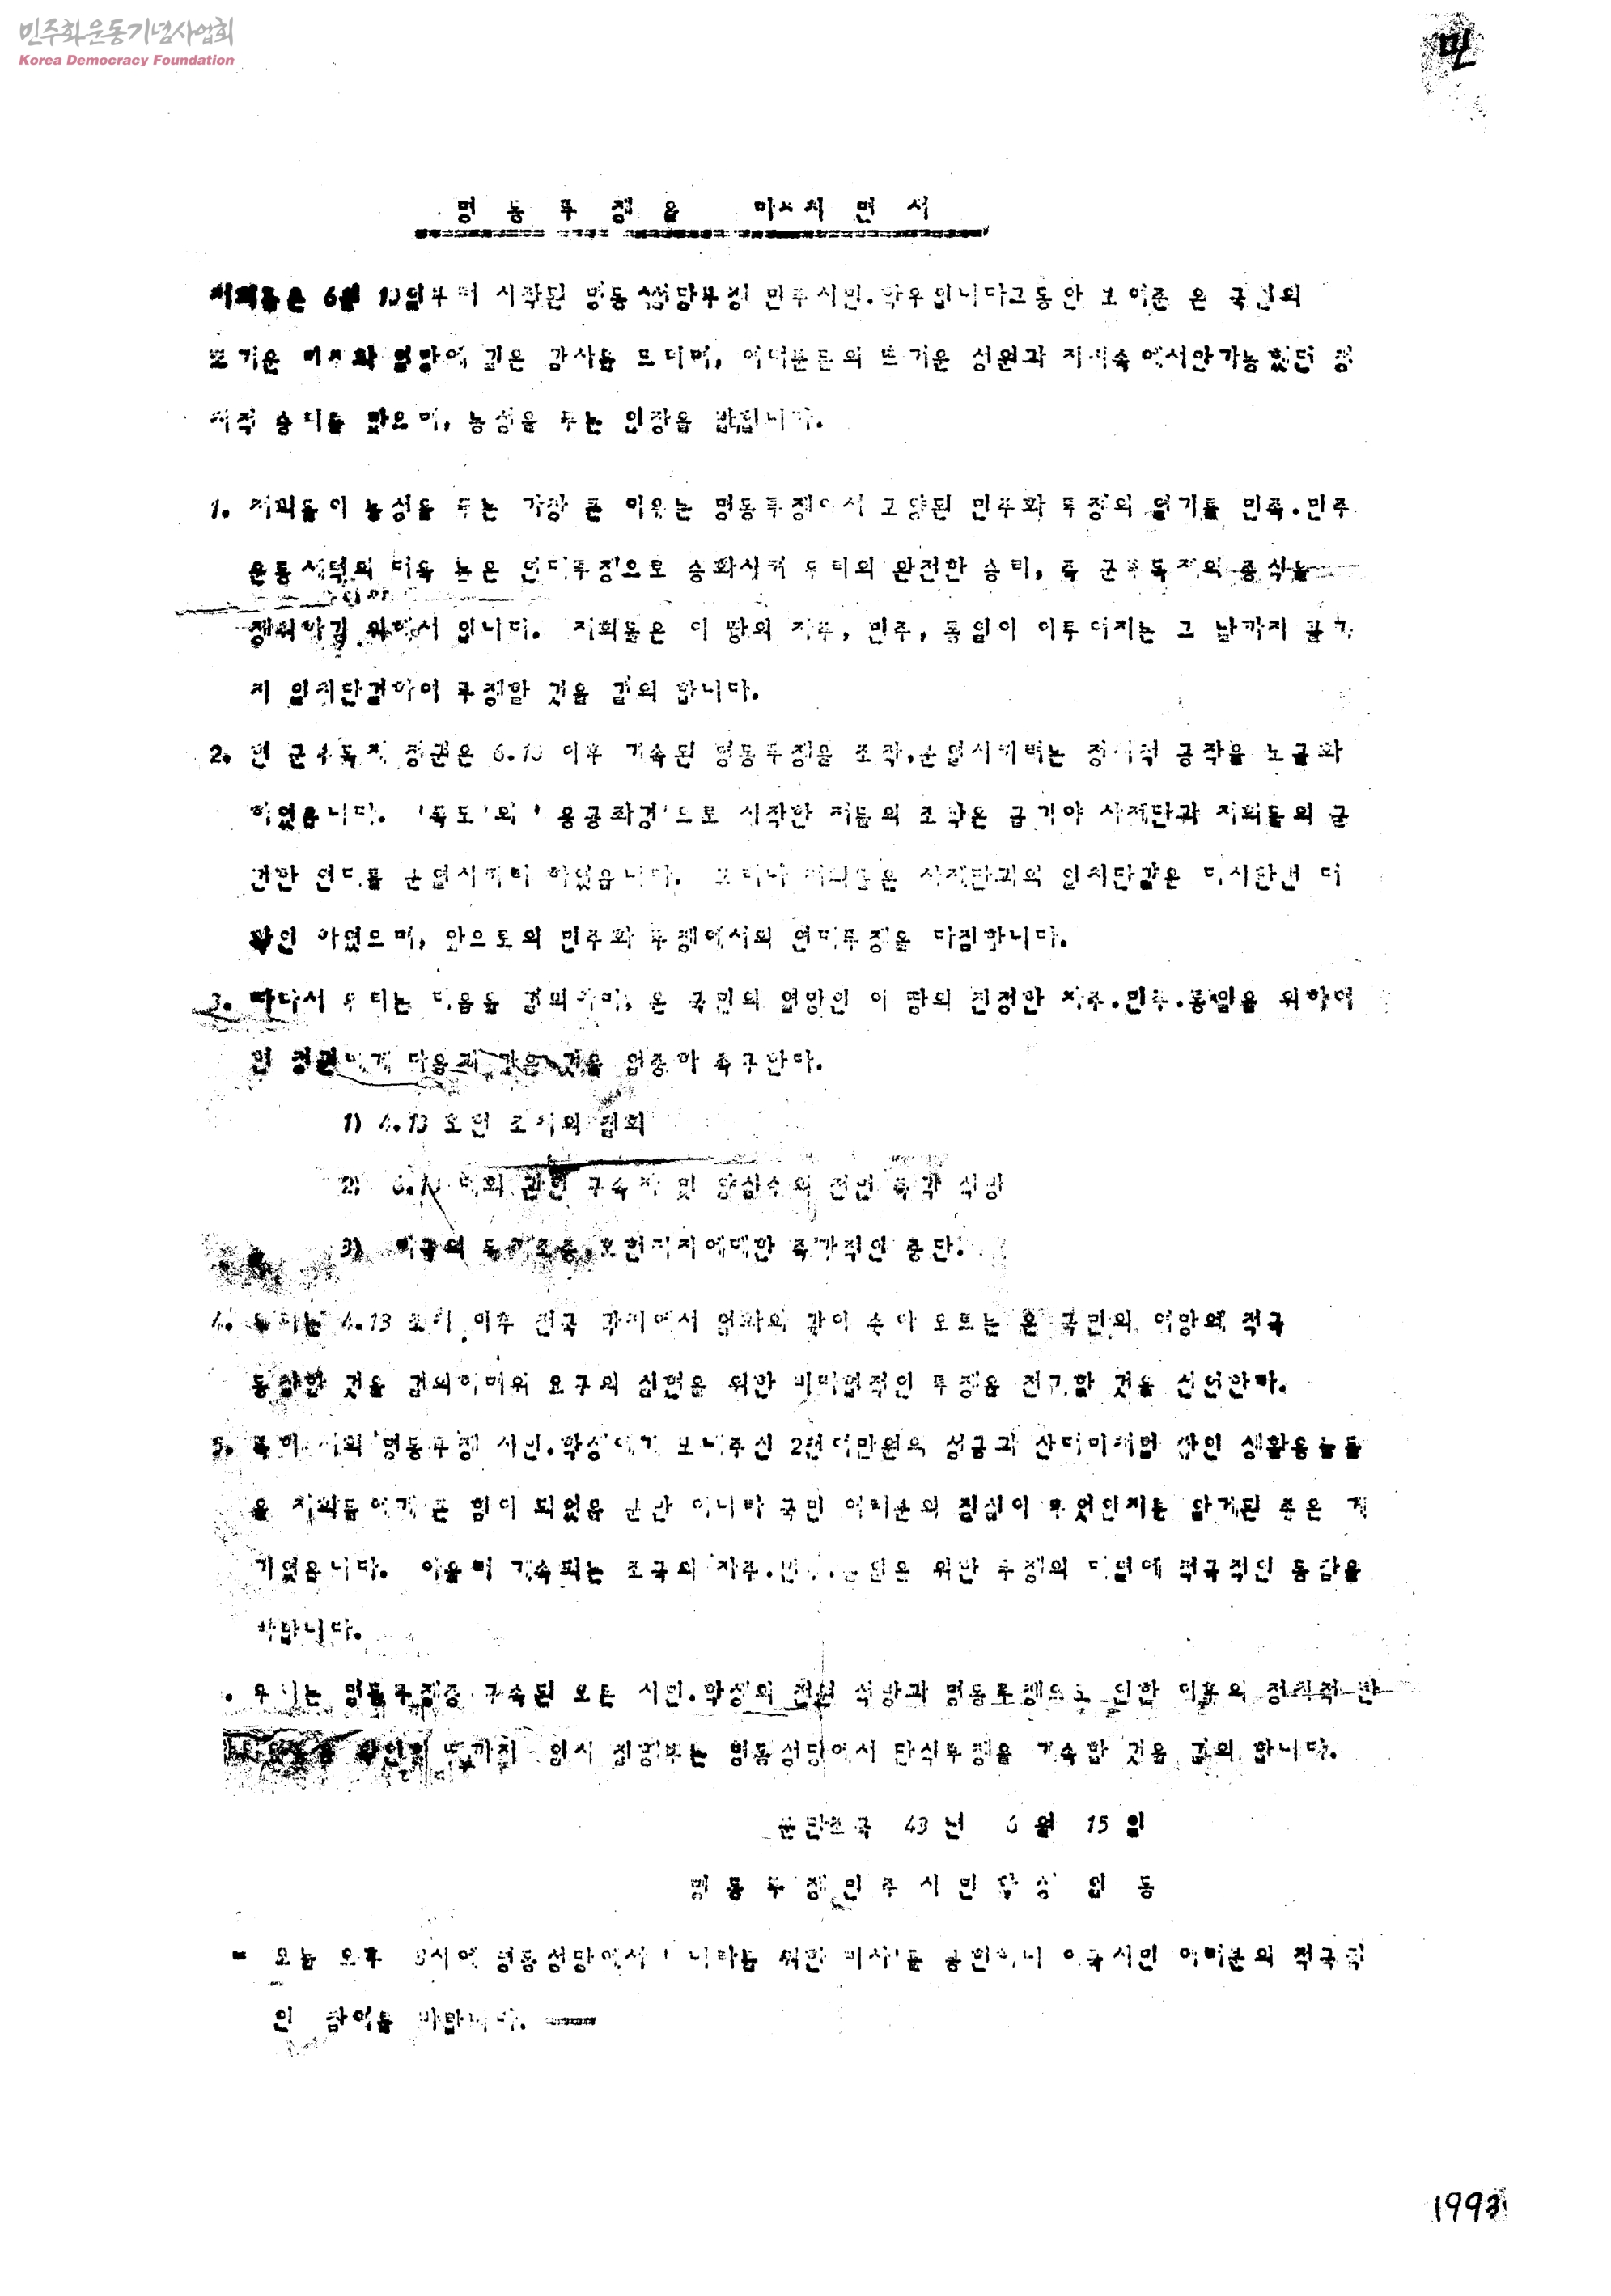 민주화운동기념사업회
Korea Democracy Foundation
민
명동투쟁을 마치면서
저희들은 6월 10일부터 시작된 명동성당투쟁 민주시민.학우입니다그동안 보여준 온 국민의
뜨거운 민주화 열망에 깊은 감사를 드리며, 여러분들의 뜨거운 성원과 지지속에서만가능했던 정
치적 승리를 맞으며, 농성을 푸는 입장을 밝힙니다.
1. 저희들이 농성을 푸는 가장 큰 이유는 명동투쟁에서 고양된 민주화 투쟁의 열기를 민족.민주
운동세력의 더욱 높은 연대투쟁으로 승화시켜 우리의 완전한 승리, 즉 군부독재의 종식을
쟁취하길 위해서 입니다. 저희들은 이 땅의 자주, 민주, 통일이 이루어지는 그 날까지 끝까
지 일치단결하여 투쟁할 것을 결의 합니다.
2. 현 군부독재 정권은 6.10 이후 계속된 명동투쟁을 조작.분열시키려는 정치적 공작을 노골화
하였습니다. '폭도'와 '용공좌경'으로 시작한 저들의 조작은 급기야 사제단과 저희들의 굳
건한 연대를 분열시키려 하였습니다. 그러나 저희들은 사제단과의 일치단결을 다시한번 더
확인 하였으며, 앞으로의 민주화 투쟁에서의 연대투쟁을 다짐합니다.
3. 따라서 우리는 다음을 결의하며, 온 국민의 열망인 이 땅의 진정한 자주.민주.통일을 위하여
현 정권에게 다음과 같은 것을 엄중히 촉구한다.
1) 4.13 호헌 조치의 철회
2) 6.10 대회 관련 구속자 및 양심수의 전면 즉각 석방
3) 미국의 독재조종, 호헌지지에대한 즉각적인 중단.
4. 우리는 4.13 조치 이후 전국 각지에서 엄화와 같이 솟아 오르는 온 국민의 여망에 적극
동참할 것을 결의하며위 요구의 실현을 위한 비타협적인 투쟁을 전개할 것을 선언한다.
5. 특히 저희 명동투쟁 시민.학생에게 보내주신 2천여만원의 성금과 산더미처럼 쌓인 생활용품들
은 저희들에게 큰 힘이 되었을 뿐만 아니라 국민 여러분의 진심이 무엇인지를 알게된 좋은 계
기였습니다. 아울러 계속되는 조국의 자주.민주.통일을 위한 투쟁의 대열에 적극적인 동참을
바랍니다.
. 우리는 명동투쟁중 구속된 모든 시민.학생의 전원 석방과 명동투쟁으로 인한 이후의 정치적 탄
확인될 때까지 임시 집행부는 명동성당에서 단식투쟁을 계속할 것을 결의 합니다.
분단조국 43년 6월 15일
명동투쟁민주시민학생 일동
= 오늘 오후 8시에 명동성당에서 '나라를 위한 미사'를 공헌하니 애국시민 여러분의 적극적
인 참여를 바랍니다. ===
1993